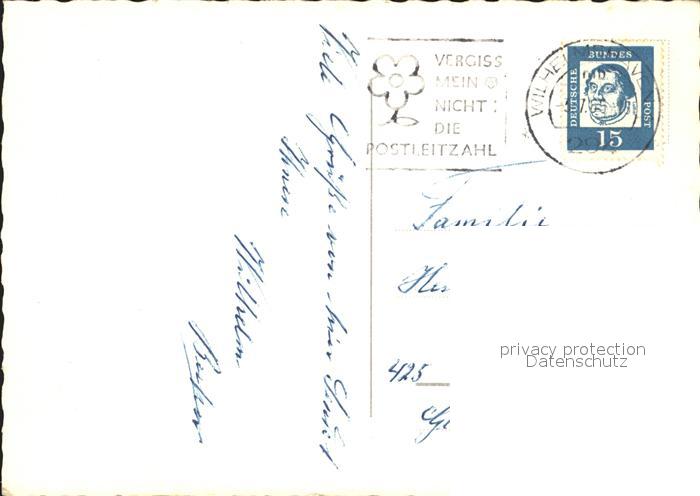 VERGISS
MEIN
NICHT:
DIE
POSTLEITZAHL
WILHELMSHAVEN
DEUTSCHE
BUNDES
POST
15
Viele Grüße von hier
Ihnen
Wilhelm
Familie
425
privacy protection
Datenschutz